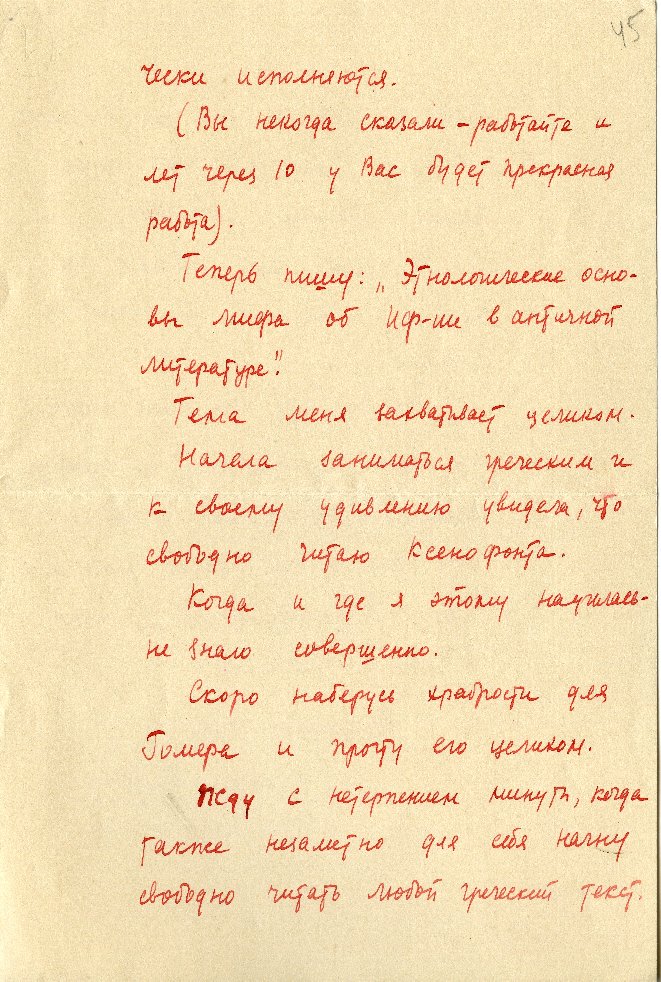 45
чески исполняются.
(Вы некогда сказали – работайте и
лет через 10 у Вас будет прекрасная
работа).
Теперь пишу: „Этнологические осно-
вы мифа об Иф-ии в античной
литературе".
Тема меня захватывает целиком.
Начала заниматься греческим и
к своему удивлению увидела, что
свободно читаю Ксенофонта.
Когда и где я этому научилась-
не знаю совершенно.
Скоро наберусь храбрости для
Гомера и прочту его целиком.
Жду с нетерпением минуты, когда
также незаметно для себя начну
свободно читать любой греческий текст.